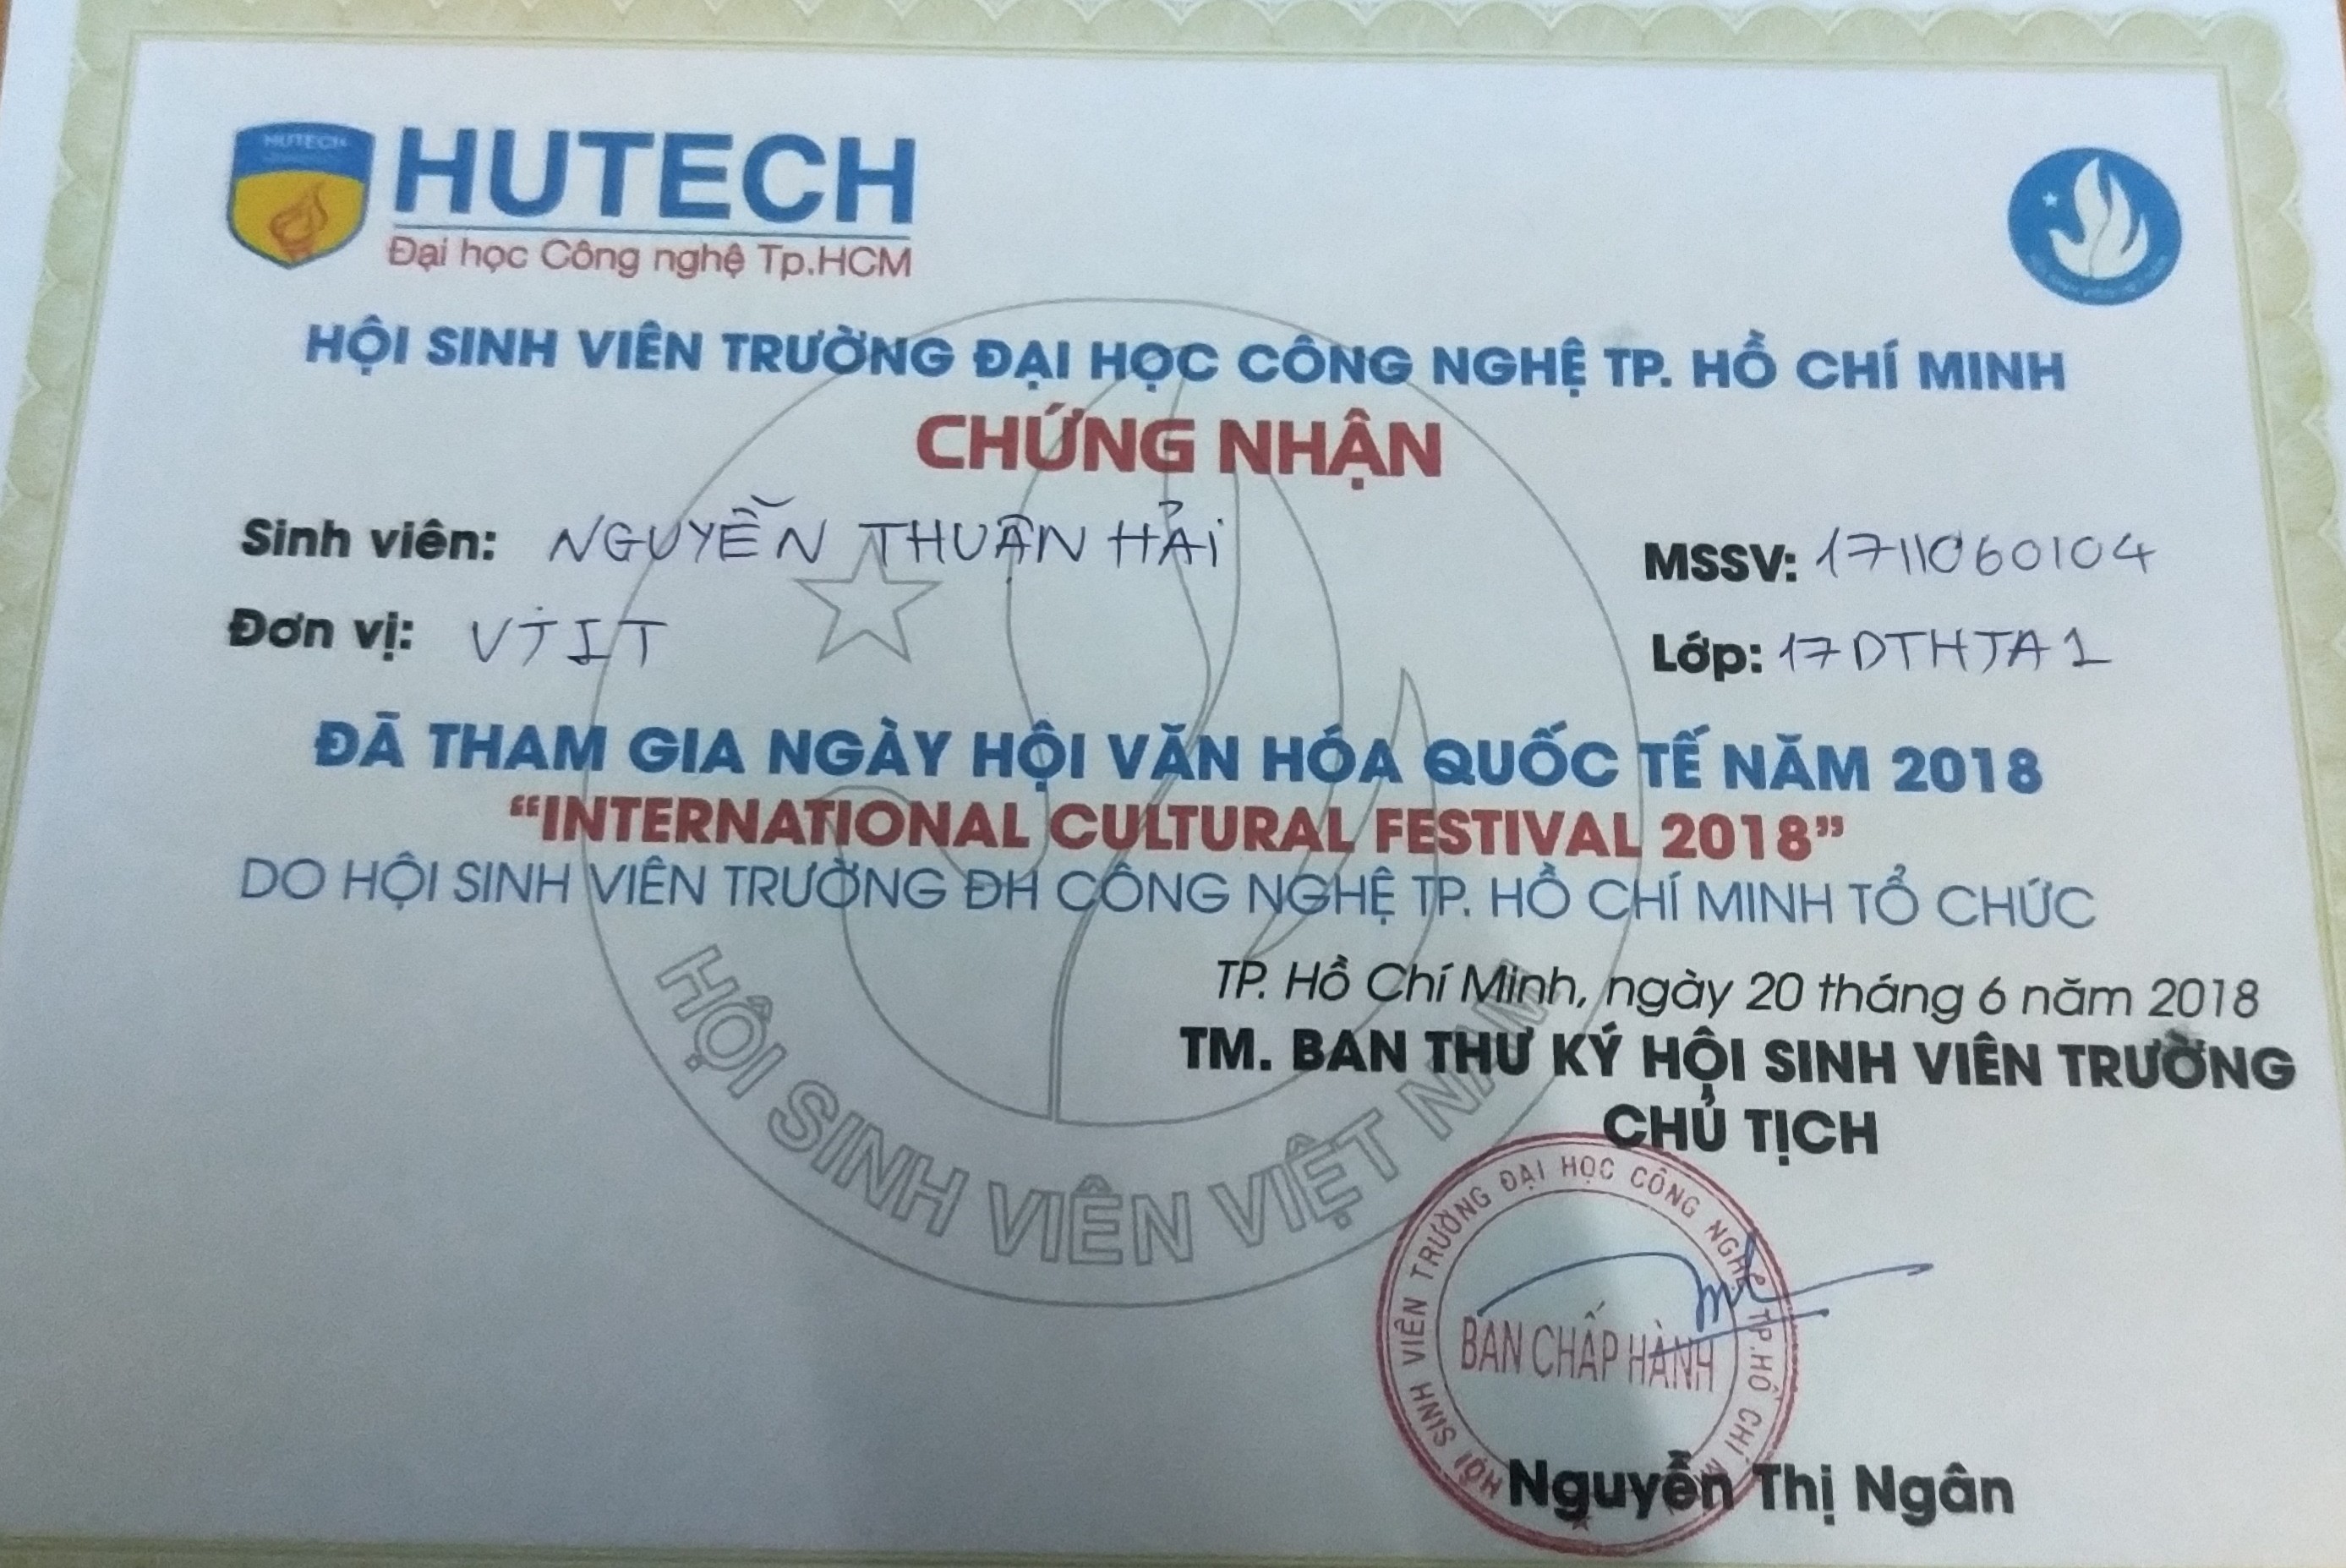 HUTECH
HUTECH
Đại học Công nghệ Tp.HCM
HỘI SINH VIÊN TRƯỜNG ĐẠI HỌC CÔNG NGHỆ TP. HỒ CHÍ MINH
CHỨNG NHẬN
Sinh viên: NGUYỄN THUẬN HẢI
MSSV: 1711060104
Đơn vị: VJIT
Lớp: 17DTHJA1
ĐÃ THAM GIA NGÀY HỘI VĂN HÓA QUỐC TẾ NĂM 2018
“INTERNATIONAL CULTURAL FESTIVAL 2018”
DO HỘI SINH VIÊN TRƯỜNG ĐH CÔNG NGHỆ TP. HỒ CHÍ MINH TỔ CHỨC
HỘI SINH VIÊN VIỆT NAM
TP. Hồ Chí Minh, ngày 20 tháng 6 năm 2018
TM. BAN THƯ KÝ HỘI SINH VIÊN TRƯỜNG
CHỦ TỊCH
HỘI SINH VIÊN TRƯỜNG ĐẠI HỌC CÔNG NGHỆ TP.HỒ CHÍ
BAN CHẤP HÀNH
Nguyễn Thị Ngân